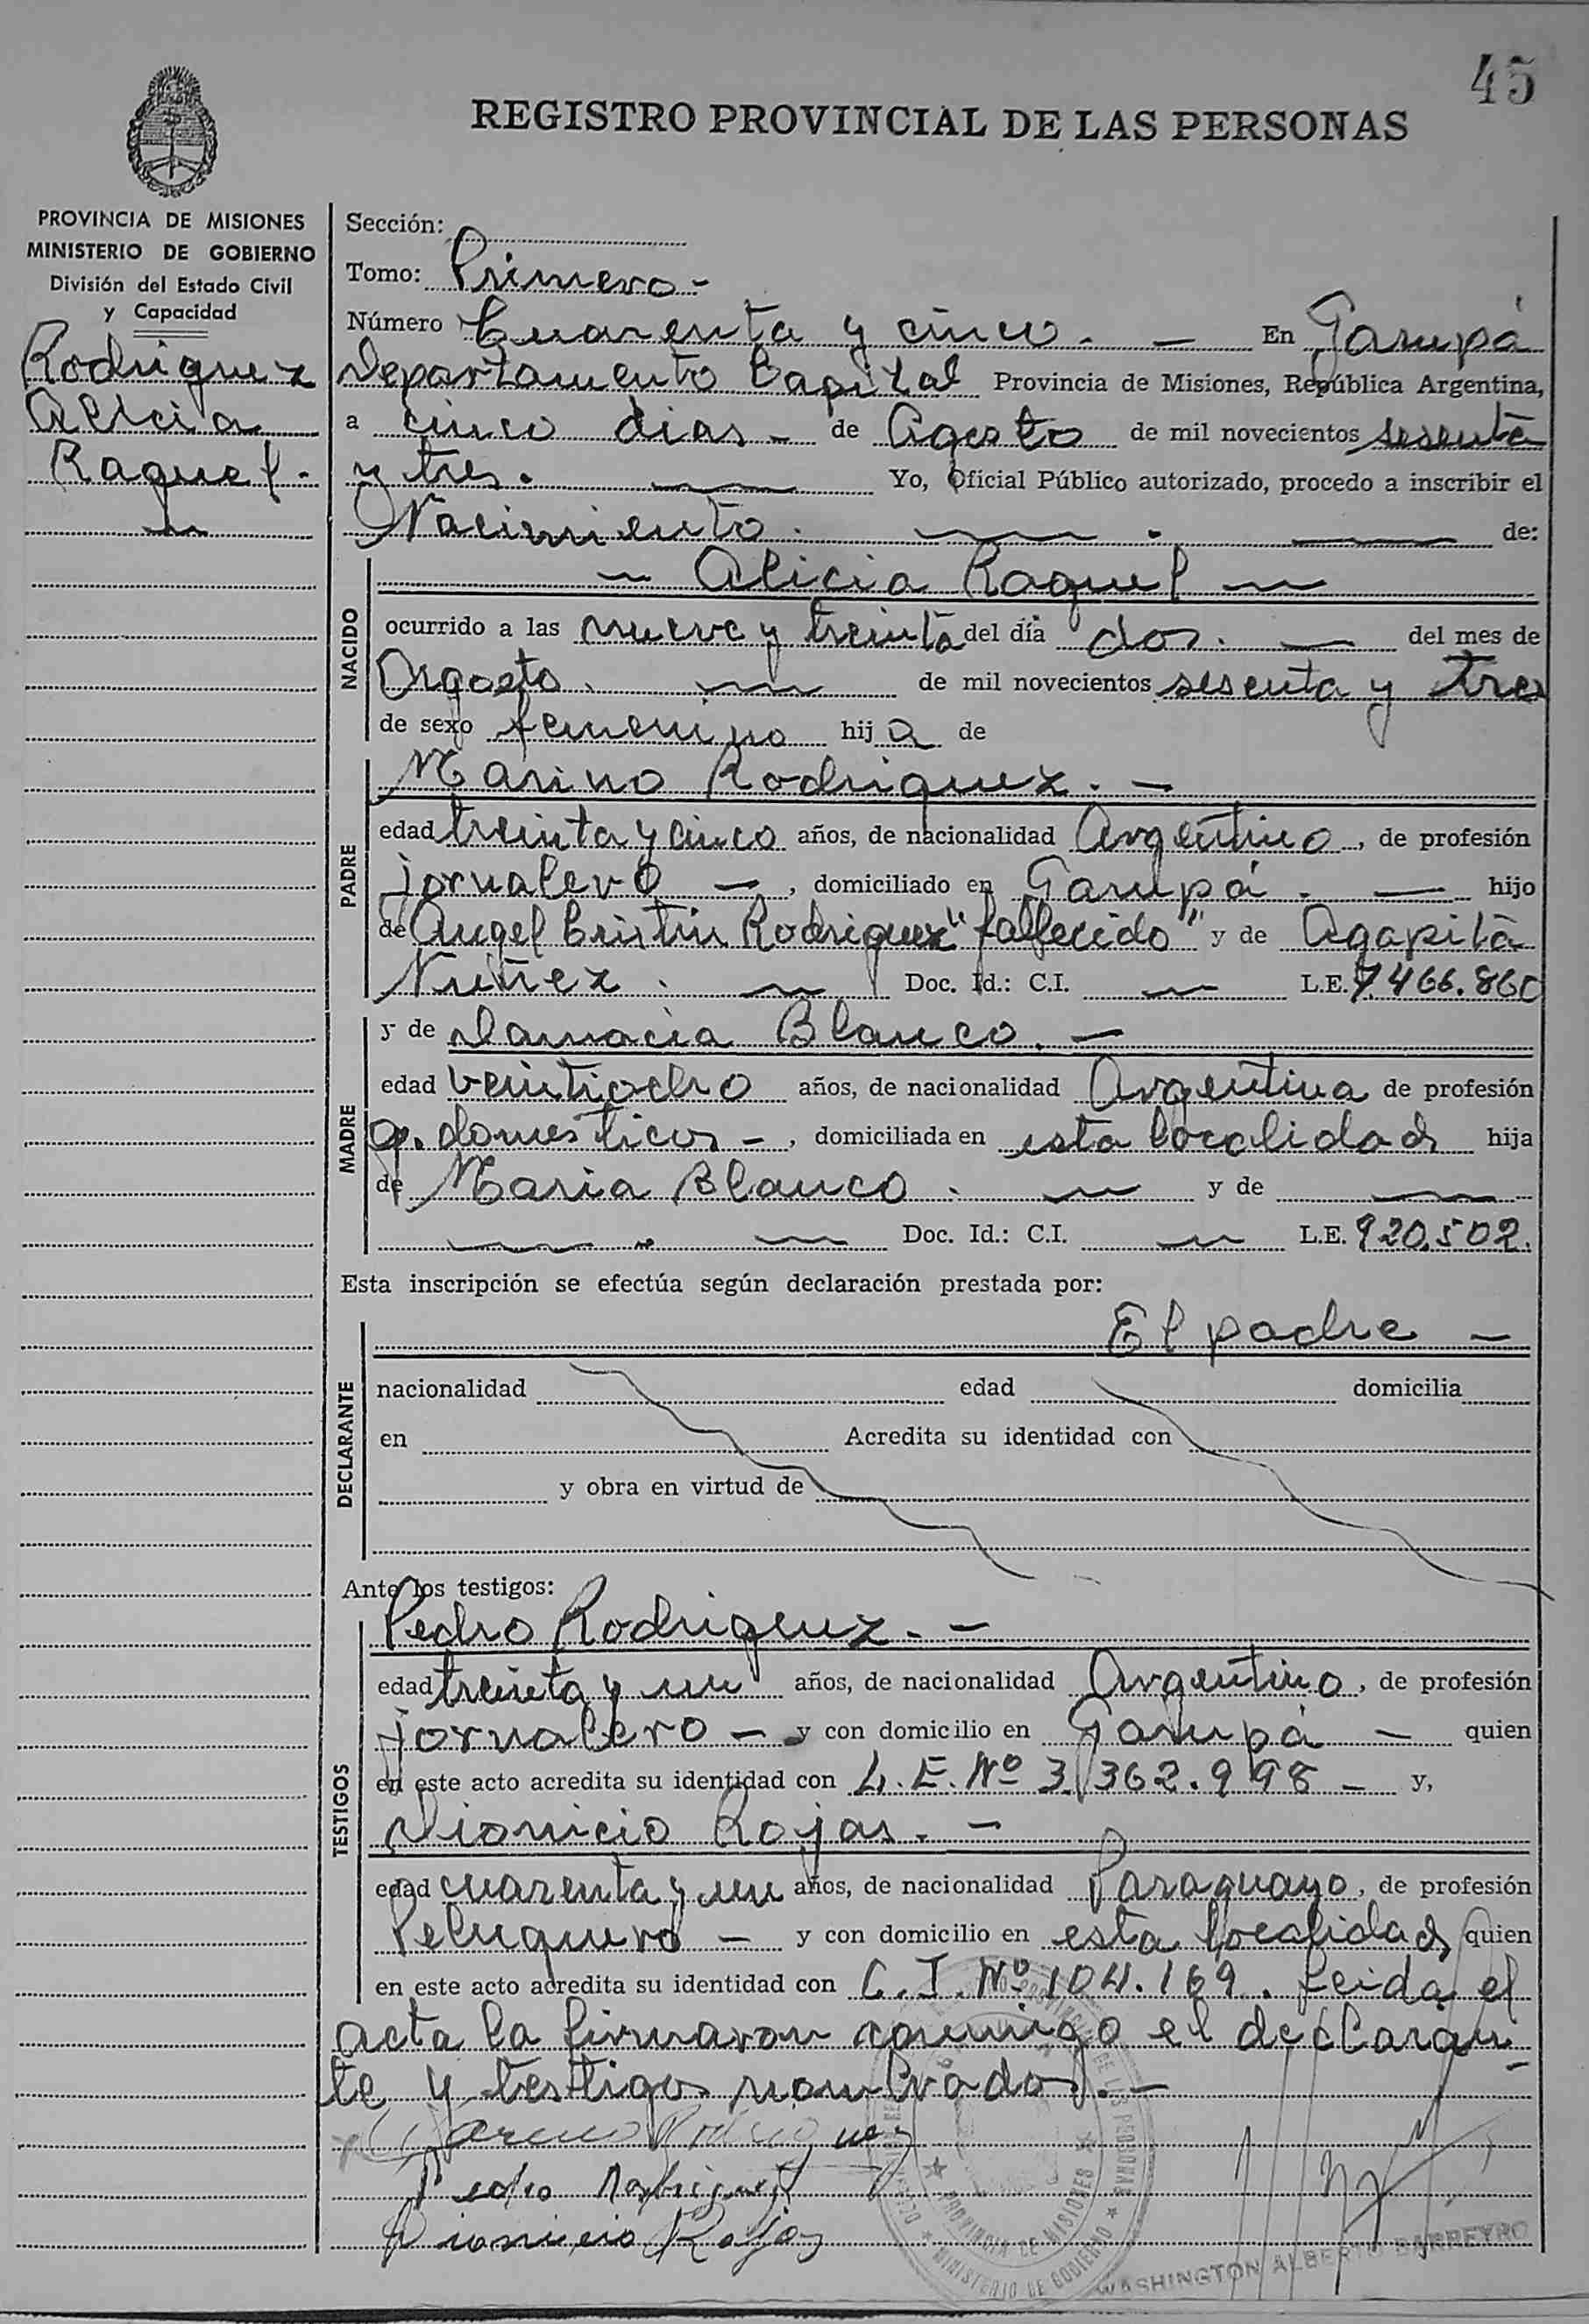 45
REGISTRO PROVINCIAL DE LAS PERSONAS
PROVINCIA DE MISIONES
MINISTERIO DE GOBIERNO
División del Estado Civil
y Capacidad
Rodriguez
Alicia
Raquel.
Sección:
Tomo: Primero -
Número Cuarenta y cinco. — En Garupá
Departamento Capital Provincia de Misiones, República Argentina,
a cinco dias - de Agosto de mil novecientos sesenta
y tres. — Yo, Oficial Público autorizado, procedo a inscribir el
Nacimiento. — . — de:
NACIDO
— Alicia Raquel —
ocurrido a las nueve y treinta del día dos. — del mes de
Agosto. — de mil novecientos sesenta y tres
de sexo femenino hija de
PADRE
Marino Rodriguez. —
edad treinta y cinco años, de nacionalidad Argentino, de profesión
jornalero —, domiciliado en Garupá. — hijo
de Angel Cristin Rodriguez "fallecido" y de Agapita
Nuñez. — Doc. Id.: C.I. — L.E. 7.466.860
MADRE
y de Damacia Blanco. —
edad veintiocho años, de nacionalidad Argentina de profesión
q. domesticos -, domiciliada en esta localidad hija
de Maria Blanco. — y de —
— . — Doc. Id.: C.I. — L.E. 920.502.
Esta inscripción se efectúa según declaración prestada por:
DECLARANTE
El padre —
nacionalidad edad domicilia
en Acredita su identidad con
y obra en virtud de
Ante los testigos:
TESTIGOS
Pedro Rodriguez. —
edad treinta y un años, de nacionalidad Argentino, de profesión
jornalero — y con domicilio en Garupá — quien
en este acto acredita su identidad con L.E. Nº 3.362.998 — y,
Dionicio Rojas. —
edad cuarenta y un años, de nacionalidad Paraguayo, de profesión
Peluquero — y con domicilio en esta localidad quien
en este acto acredita su identidad con C.I. Nº 104.169. Leida el
acta la firmaron conmigo el declaran-
te y testigos nombrados. —
Marino Rodriguez
Pedro Rodriguez
Dionicio Rojas
PROVINCIA DE MISIONES
MINISTERIO DE GOBIERNO
WASHINGTON ALBERTO BARREYRO